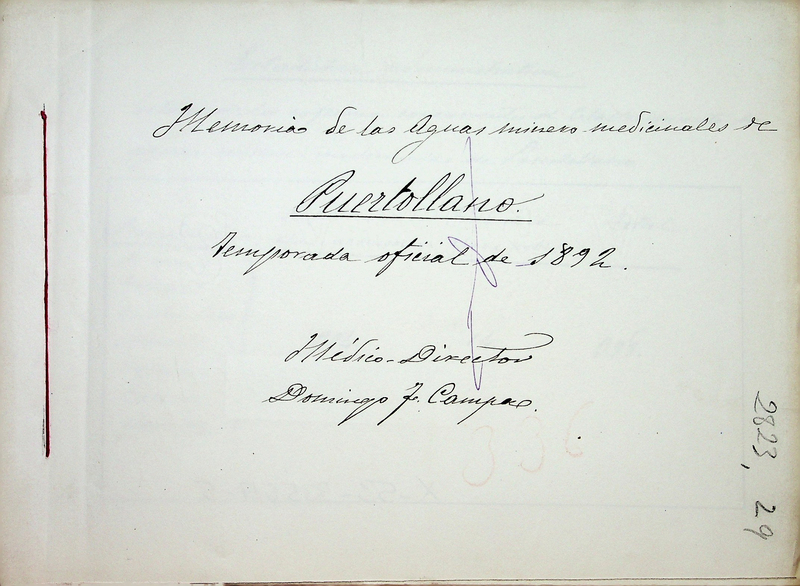 Memoria de las Aguas minero medicinales de
Puertollano.
temporada oficial de 1892.
Médico-Director
Domingo F. Campa.
2823, 29